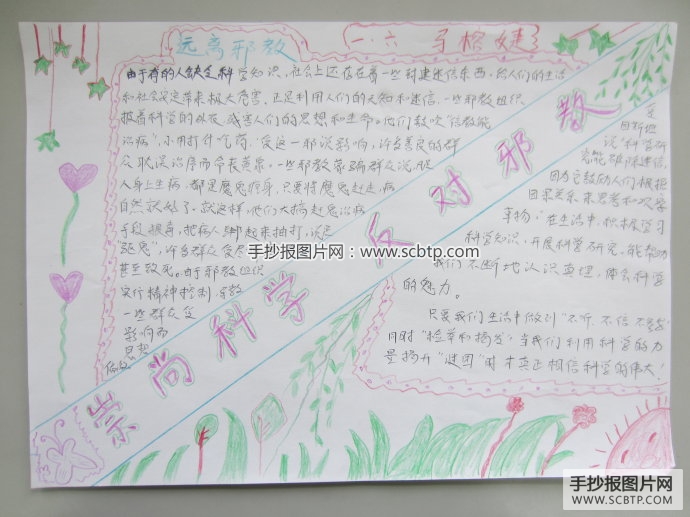 远离邪教
一.六
由于有的人缺乏科学知识,社会上还存在着一些封建迷信东西,给人们的生活
和社会安定带来极大危害。正是利用人们的无知和迷信,一些邪教组织
披着科学的外衣,残害人们的思想和生命。他们鼓吹"信教能
治病",不用打针吃药。受这一邪说影响,许多善良的群
众耽误治疗而命丧黄泉。一些邪教蒙骗群众说,呢
人身上生病,都是魔鬼附身,只要将魔鬼赶走,病
自然就好了。就这样,他们大搞赶鬼治病
手段狠毒,把病人绑起来抽打,说是
"驱鬼",许多群众受尽
甚至致死。由于邪教组织
实行精神控制
一些群众受
影响而
崇尚科学 反对邪教
手抄报图片网:www.scbtp.com
说"科学研
究能破除迷信,
因为它鼓励人们根据
因果关系来思考和观察
事物"在生活中,积极学习
科学知识,开展科学研究,能帮助
我们不断地认识真理,体会科学
的魅力。
只要我们生活中做到"不听、不信、不传"
同时"检举和揭发",当我们利用科学的力
量揭开"谜团"时才真正相信科学的伟大!
手抄报图片网
WWW.SCBTP.COM